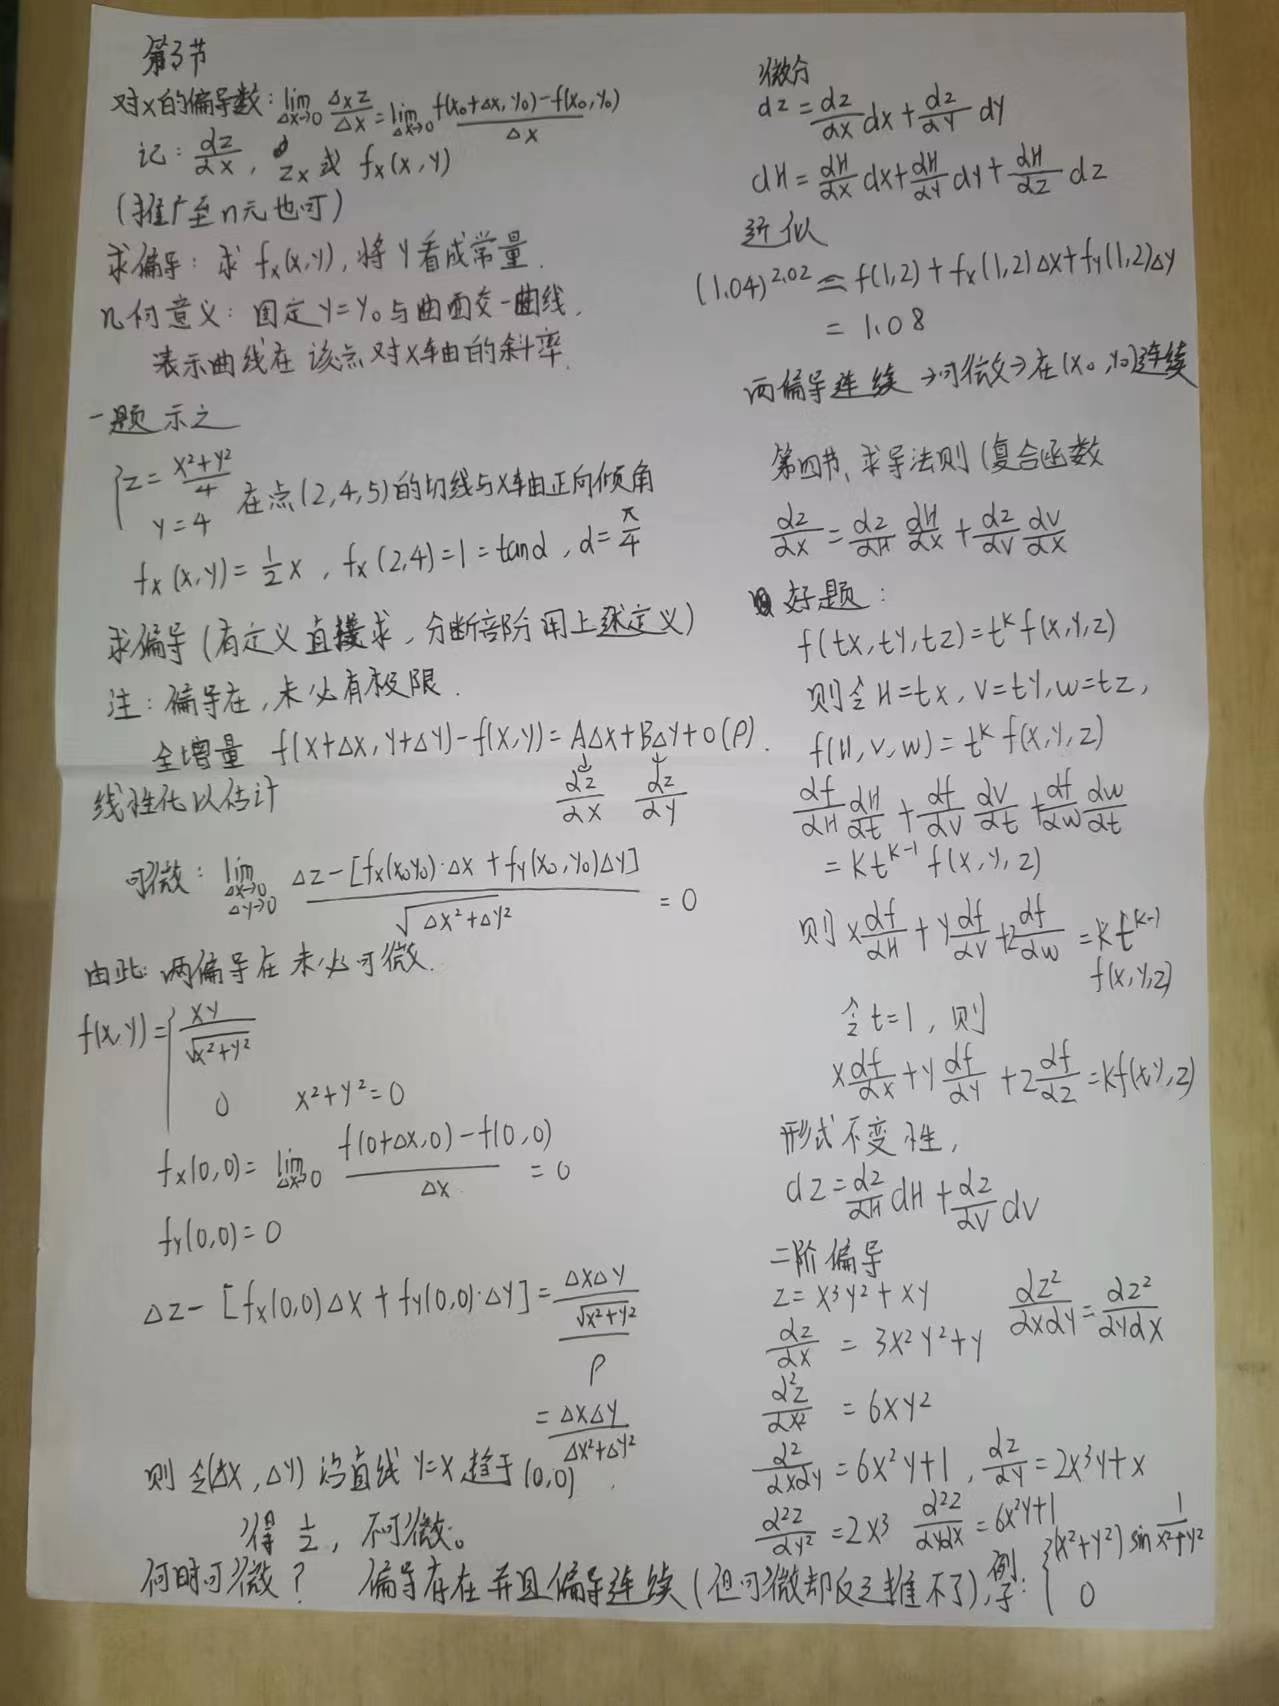 第3节
对x的偏导数: lim Δx→0 Δxz/Δx = lim Δx→0 f(x₀+Δx, y₀)-f(x₀,y₀)/Δx
记: ∂z/∂x, zx 或 fx(x,y)
(推广至n元也可)
求偏导: 求 fx(x,y), 将y看成常量.
几何意义: 固定y=y₀与曲面交一曲线,
表示曲线在该点对x轴的斜率.
一题示之
{z=x²+y²/4
y=4 在点(2,4,5)的切线与x轴正向倾角
fx(x,y)=1/2 x, fx(2,4)=1=tanα, α=π/4
求偏导(有定义直接求,分断部分用上述定义)
注: 偏导在,未必有极限.
全增量 f(x+Δx, y+Δy)-f(x,y)=AΔx+BΔy+o(ρ).
∂z/∂x ∂z/∂y
线性化以估计
可微: lim Δx→0 Δy→0 Δz-[fx(x₀y₀)·Δx+fy(x₀,y₀)Δy]/√Δx²+Δy² = 0
由此: 两偏导在未必可微.
f(x,y)={xy/√x²+y²
0 x²+y²=0
fx(0,0)= lim Δx→0 f(0+Δx,0)-f(0,0)/Δx = 0
fy(0,0)=0
Δz-[fx(0,0)Δx+fy(0,0)·Δy]=ΔxΔy/√x²+y²/ρ
=ΔxΔy/Δx²+Δy²
则令(Δx,Δy)沿直线y=x趋于(0,0)
得 1/2, 不可微。
何时可微? 偏导存在并且偏导连续(但可微却反之推不了), 例子: {(x²+y²)sin 1/x²+y²
0
微分
dz=∂z/∂x dx+∂z/∂y dy
dH=∂H/∂x dx+∂H/∂y dy+∂H/∂z dz
近似
(1.04)^2.02 ≃ f(1,2)+fx(1,2)Δx+fy(1,2)Δy
=1.08
两偏导连续→可微→在(x₀,y₀)连续
第四节、求导法则(复合函数
∂z/∂x=∂z/∂H ∂H/∂x+∂z/∂v ∂v/∂x
好题:
f(tx,ty,tz)=t^k f(x,y,z)
则令H=tx, v=ty, w=tz,
f(H,v,w)=t^k f(x,y,z)
∂f/∂H ∂H/∂t+∂f/∂v ∂v/∂t+∂f/∂w ∂w/∂t
=kt^k-1 f(x,y,z)
则 x∂f/∂H+y∂f/∂v+z∂f/∂w=kt^k-1
f(x,y,z)
令t=1, 则
x∂f/∂x+y∂f/∂y+z∂f/∂z=kf(x,y,z)
形式不变性,
dz=∂z/∂H dH+∂z/∂v dv
二阶偏导
z=x³y²+xy ∂z²/∂x∂y=∂z²/∂y∂x
∂z/∂x=3x²y²+y
∂²z/∂x²=6xy²
∂z/∂x∂y=6x²y+1, ∂z/∂y=2x³y+x
∂²z/∂y²=2x³ ∂²z/∂y∂x=6x²y+1